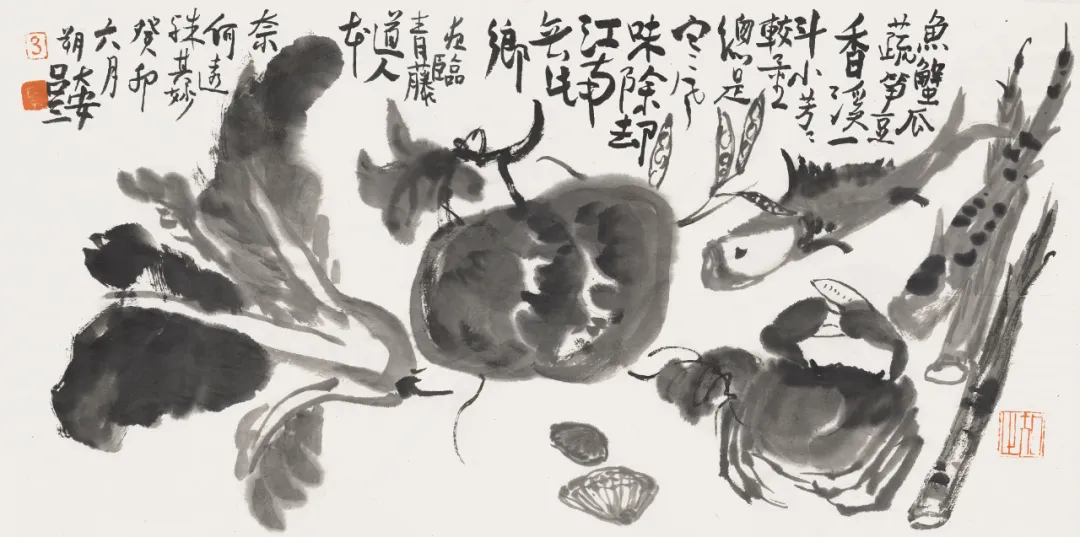 魚蟹瓜
蔬筍豆
香溪一
斗小芳々
較量
總是
味除却
江南
無此
鄉
左臨
青藤
道人
本
奈
何遠
殊甚妙
癸卯
六月
朔大安